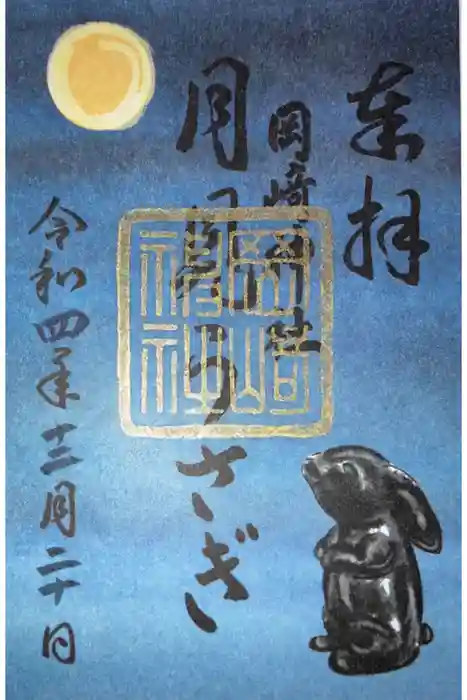 奉拝
岡崎神社
月
うさぎ
令和四年十二月二十日
岡崎
神社